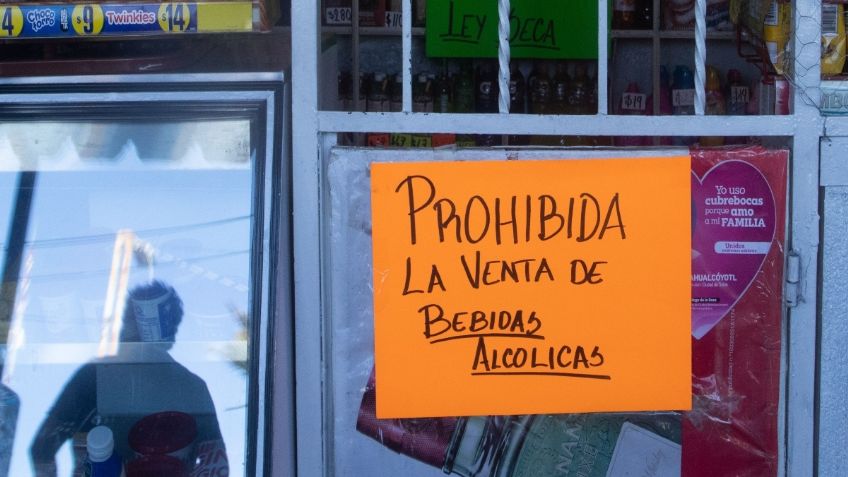 4 Choco Roles $9 Twinkies $14
$280
$110
LEY SECA
$19
PROHIBIDA
LA VENTA DE
BEBIDAS
ALCOLICAS
Yo uso
cubrebocas
porque amo
a mi FAMILIA
Unidos
AHUALCÓYOTL